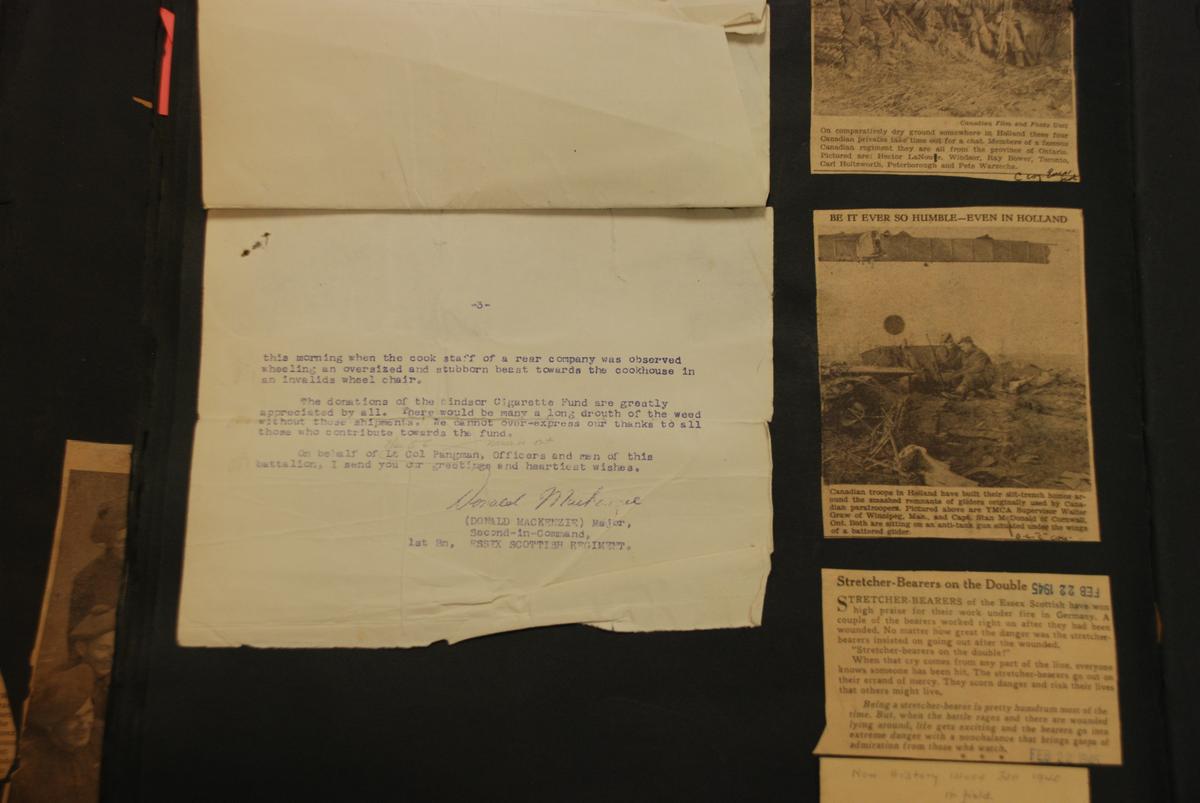 -3-
this morning when the cook staff of a rear company was observed
wheeling an oversized and stubborn beast towards the cookhouse in
an invalids wheel chair.
The donations of the Windsor Cigarette Fund are greatly
appreciated by all. There would be many a long drouth of the weed
without these shipments. We cannot over-express our thanks to all
those who contribute towards the fund.
On behalf of Lt Col Pangman, Officers and men of this
battalion, I send you our greetings and heartiest wishes.
Donald Mackenzie
(DONALD MACKENZIE) Major,
Second-in-Command,
1st Bn, ESSEX SCOTTISH REGIMENT.
Canadian Film and Photo Unit
On comparatively dry ground somewhere in Holland these four
Canadian privates take time out for a chat. Members of a famous
Canadian regiment they are all from the province of Ontario.
Pictured are: Hector LaNoue, Windsor, Ray Bower, Toronto,
Carl Holtzworth, Peterborough and Pete Warzecha.
BE IT EVER SO HUMBLE—EVEN IN HOLLAND
Canadian troops in Holland have built their slit-trench homes ar-
ound the smashed remnants of gliders originally used by Cana-
dian paratroopers. Pictured above are YMCA Supervisor Walter
Graw of Winnipeg, Man., and Capt. Stan McDonald of Cornwall,
Ont. Both are sitting on an anti-tank gun situated under the wings
of a battered glider.
Stretcher-Bearers on the Double FEB 22 1945
STRETCHER-BEARERS of the Essex Scottish have won
high praise for their work under fire in Germany. A
couple of the bearers worked right on after they had been
wounded. No matter how great the danger was the stretcher-
bearers insisted on going out after the wounded.
"Stretcher-bearers on the double!"
When that cry comes from any part of the line, everyone
knows someone has been hit. The stretcher-bearers go out on
their errand of mercy. They scorn danger and risk their lives
that others might live.
Being a stretcher-bearer is pretty humdrum most of the
time. But, when the battle rages and there are wounded
lying around, life gets exciting and the bearers go into
extreme danger with a nonchalance that brings gasps of
admiration from those who watch.
FEB 22 1945
in field.